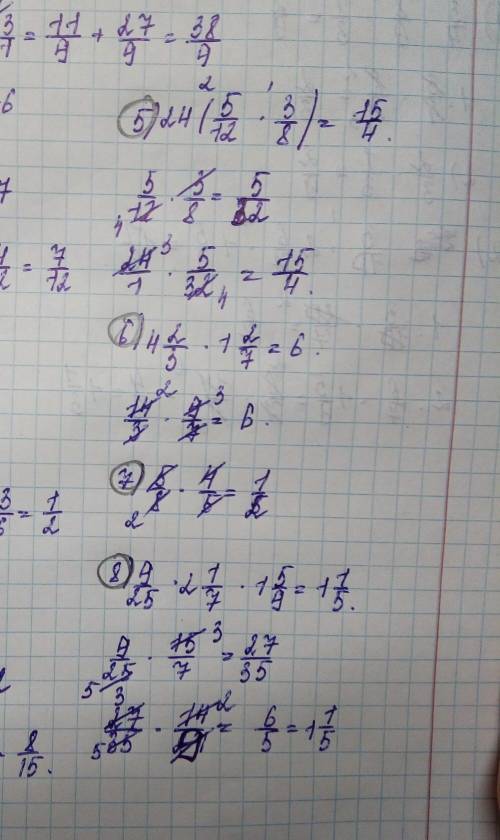 3/1 = 11/9 + 27/9 = 38/9
6
5) 24 (5/12 · 3/8) = 15/4.
7
5/12 · 3/8 = 5/32
1/2 = 7/12
24/1 · 5/32 = 15/4.
6) 4 2/3 · 1 2/7 = 6.
14/3 · 9/7 = 6.
7) 5/8 · 4/5 = 1/2
3/5 = 1/2
8) 9/25 · 2 1/7 · 1 5/9 = 1 1/5.
9/25 · 15/7 = 27/35
27/35 · 14/9 = 6/5 = 1 1/5
8/15.